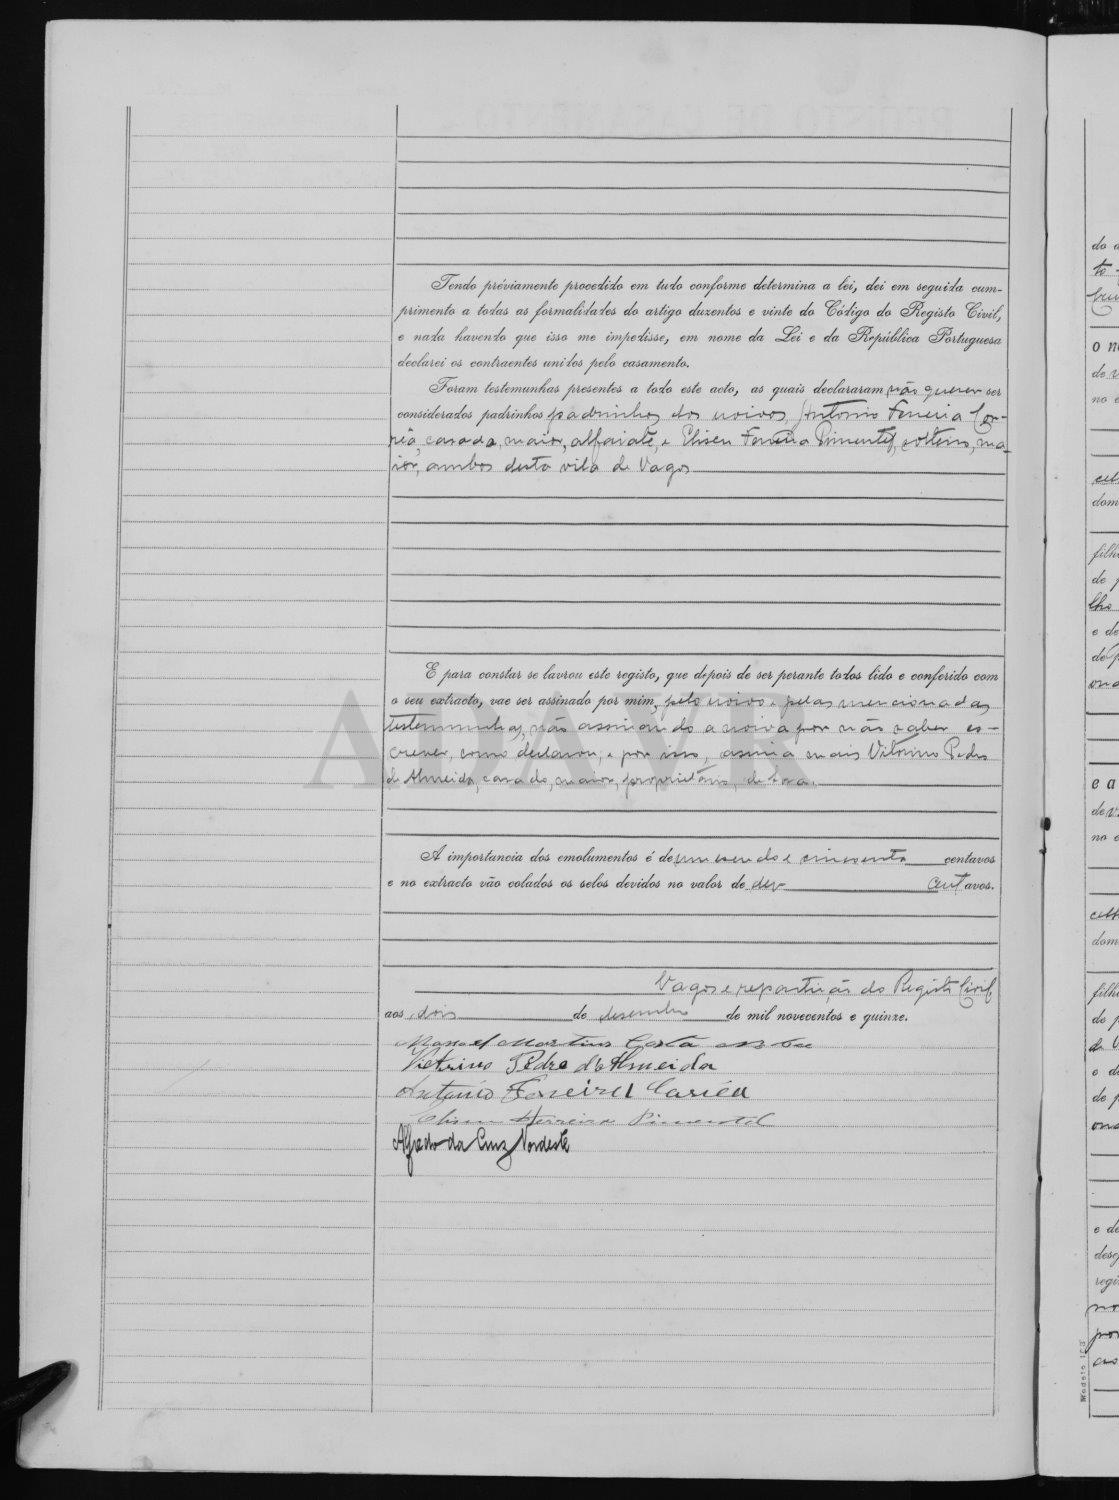 Tendo préviamente procedido em tudo conforme determina a lei, dei em seguida cum-
primento a todas as formalidades do artigo duzentos e vinte do Código do Registo Civil,
e nada havendo que isso me impedisse, em nome da Lei e da República Portuguesa
declarei os contraentes unidos pelo casamento.
Foram testemunhas presentes a todo este acto, as quais declararam não querer ser
considerados padrinhos padrinhos dos noivos, Antonio Ferreira Cor-
reia, casado, maior, alfaiate, e Eliseu Ferreira Pimentel, solteiro, ma-
ior, ambos desta vila de Vagos
E para constar se lavrou este registo, que depois de ser perante todos lido e conferido com
o seu extracto, vae ser assinado por mim, pelo noivo e pelas mencionadas
testemunhas, não assinando a noiva por não saber es-
crever, como declarou, e por isso, assina mais Vitorino Pedro
de Almeida, casado, maior, proprietário, de
A importancia dos emolumentos é de um escudo e cincoenta centavos
e no extracto vão colados os selos devidos no valor de dez centavos.
Vagos e repartição do Registo Civil
aos dois de dezembro de mil novecentos e quinze.
Manoel Martins Costa
Victrino Pedro d'Almeida
António Ferreira
Eliseu Ferreira Pimentel
Alfredo da Cruz Nordeste
ADAVR
o n
e a
filh
dom
Modelo 1C3